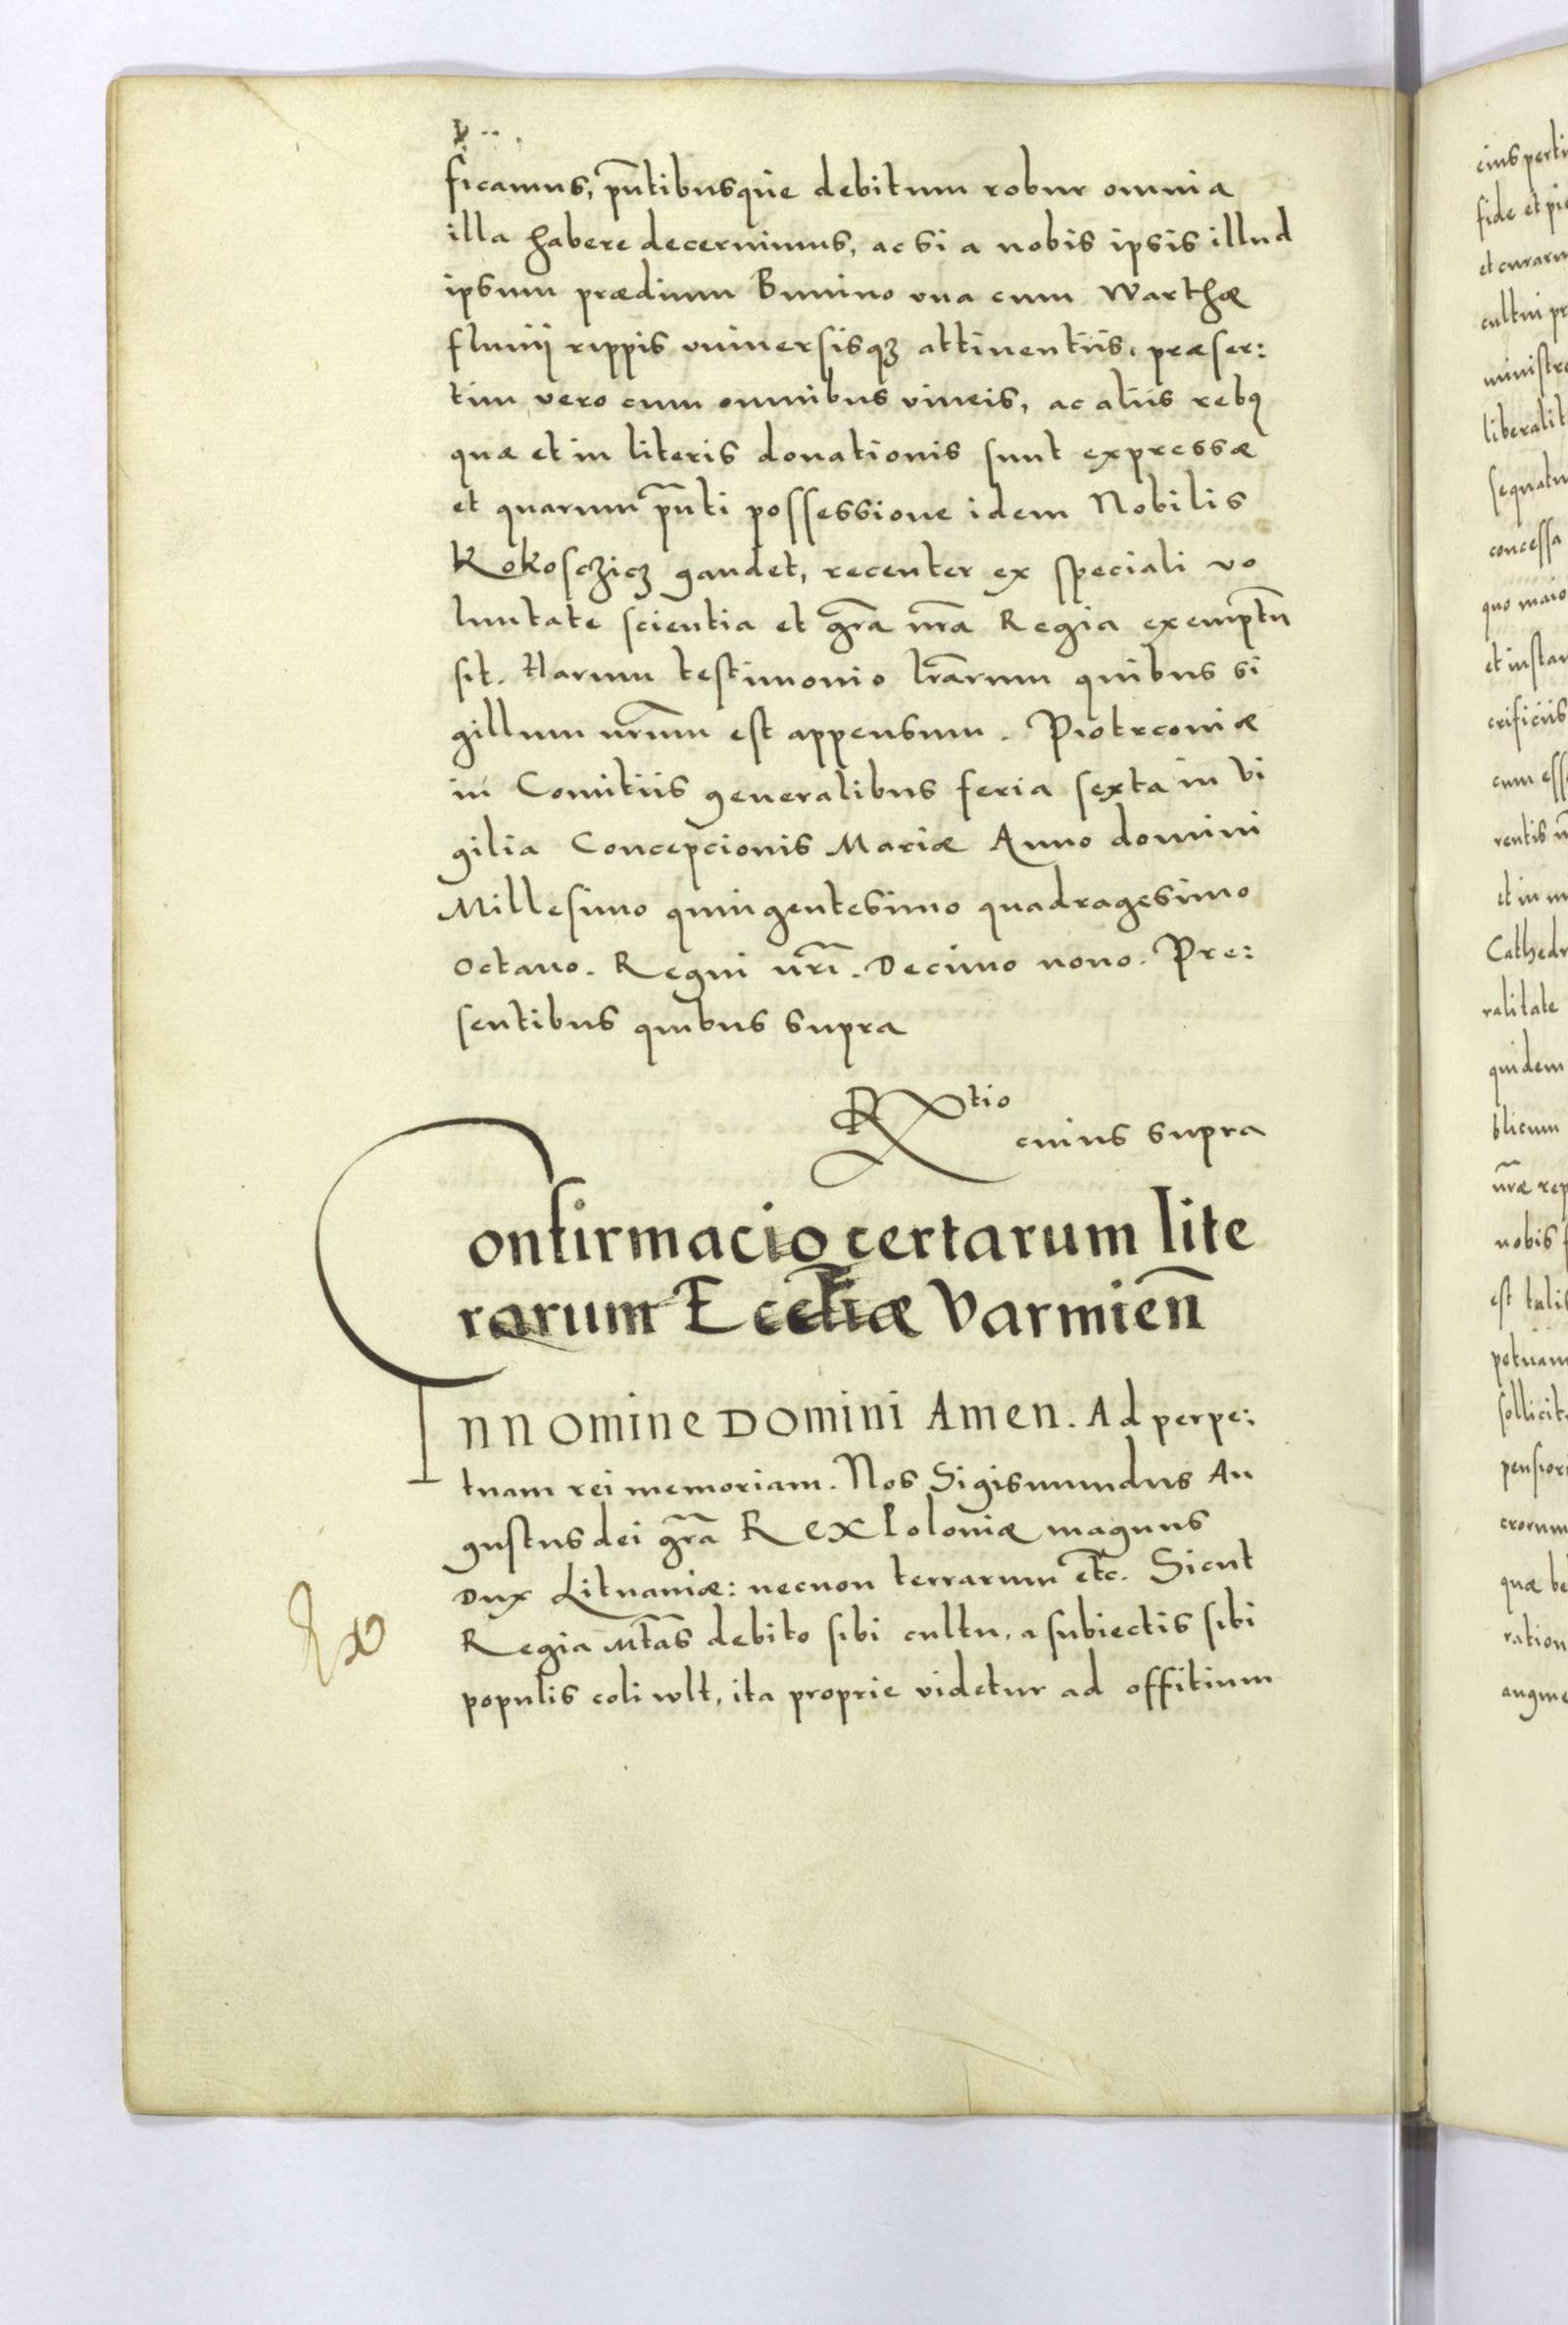 ficamus, p̃ntibusque debitum robur omnia
illa habere decernimus, ac si a nobis ipsis illud
ipsum prædium Bnino vna cum Warthæ
fluuij rippis vniuersisqꝫ attinentiis, præser:
tim vero cum omnibus vineis, ac aliis rebꝯ
quæ et in literis donationis sunt expressæ
et quarum p̃nti possessione idem Nobilis
Kokosczicz gaudet, recenter ex speciali vo
luntate scientia et gr̃a nr̃a Regia exemptũ
sit. Harum testimonio lr̃arum quibus si
gillum nr̃um est appensum. Piotrconiæ
in Comitiis generalibus feria sexta in vi
gilia Concepcionis Mariæ Anno domini
Millesimo quingentesimo quadragesimo
octauo. Regni nr̃i. Decimo nono. Pre:
sentibus quibus supra
Rtio
cuius supra
Confirmacio certarum lite
rarum Eccl̃iæ Varmien̄
In nomine Domini Amen. Ad perpe:
tuam rei memoriam. Nos Sigismundus Au
gustus dei gr̃a Rex Poloniæ magnus
Dux Lituaniæ: necnon terrarum etc̃. Sicut
Regia Mt̃as debito sibi cultu, a subiectis sibi
populis coli wlt, ita proprie videtur ad offitium
eius perti
fide et pie
et curaru
cultui pr
ministr
liberalit
sequatu
concessa
quo maio
et instan
crificiis
cum ess
rentis
et in
Cathedr
ralitate
quidem
blicum
nr̃æ rep
nobis
est tali
petuam
sollicit
pension
crorum
quæ be
ration
augme